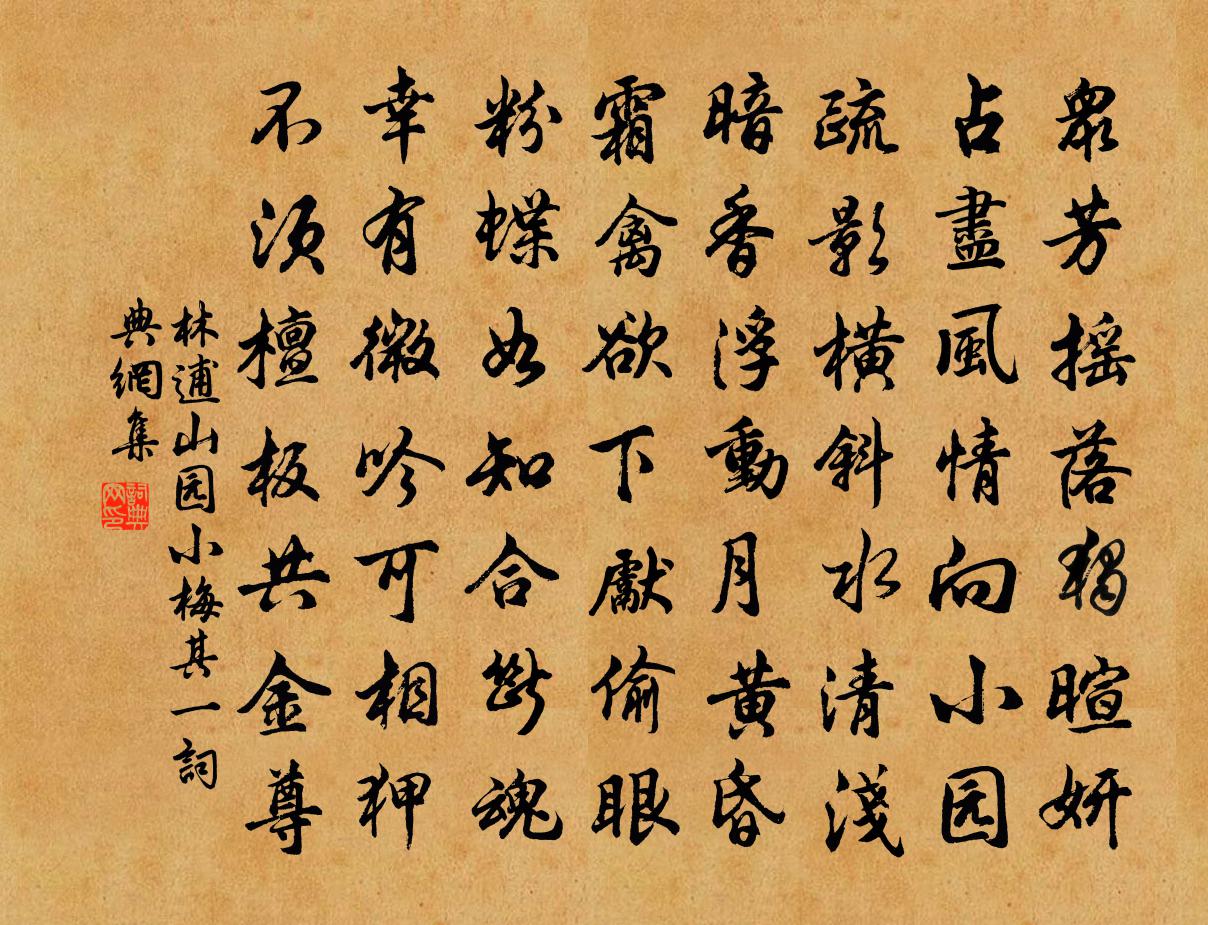 眾芳搖落獨暄妍
占盡風情向小园
疏影橫斜水清淺
暗香浮動月黃昏
霜禽欲下獻偷眼
粉蝶如知合斷魂
幸有微吟可相狎
不須檀板共金尊
林逋山园小梅其一詞
典網集
詞典
网印